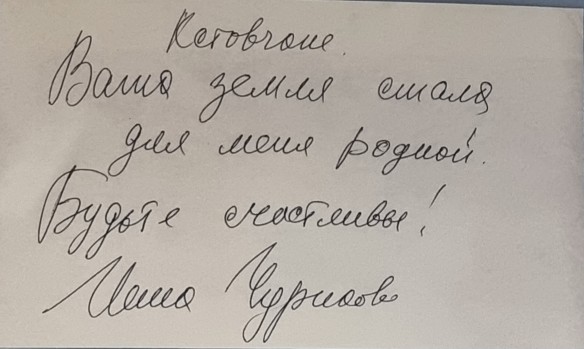 Кстовчане.
Ваша земля стала
для меня родной.
Будьте счастливы!
Инна Чурикова